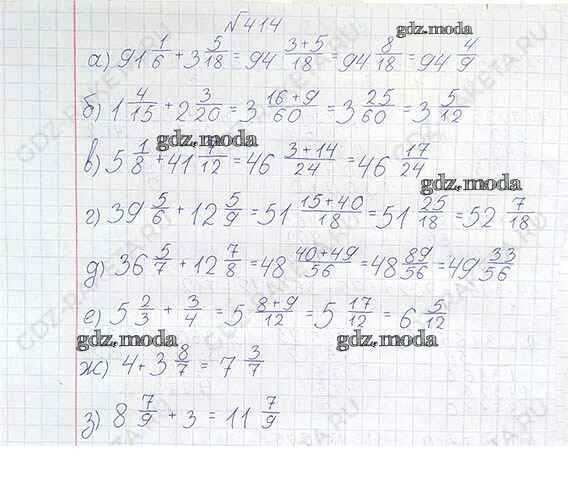 №414
gdz.moda
а) 91 1/6 + 3 5/18 = 94 (3+5)/18 = 94 8/18 = 94 4/9
б) 1 4/15 + 2 3/20 = 3 (16+9)/60 = 3 25/60 = 3 5/12
gdz.moda
в) 5 1/8 + 41 /12 = 46 (3+14)/24 = 46 17/24
gdz.moda
г) 39 5/6 + 12 5/9 = 51 (15+40)/18 = 51 25/18 = 52 7/18
д) 36 5/7 + 12 7/8 = 48 (40+49)/56 = 48 89/56 = 49 33/56
е) 5 2/3 + 3/4 = 5 (8+9)/12 = 5 17/12 = 6 5/12
gdz.moda gdz.moda
ж) 4 + 3 8/7 = 7 3/7
з) 8 7/9 + 3 = 11 7/9